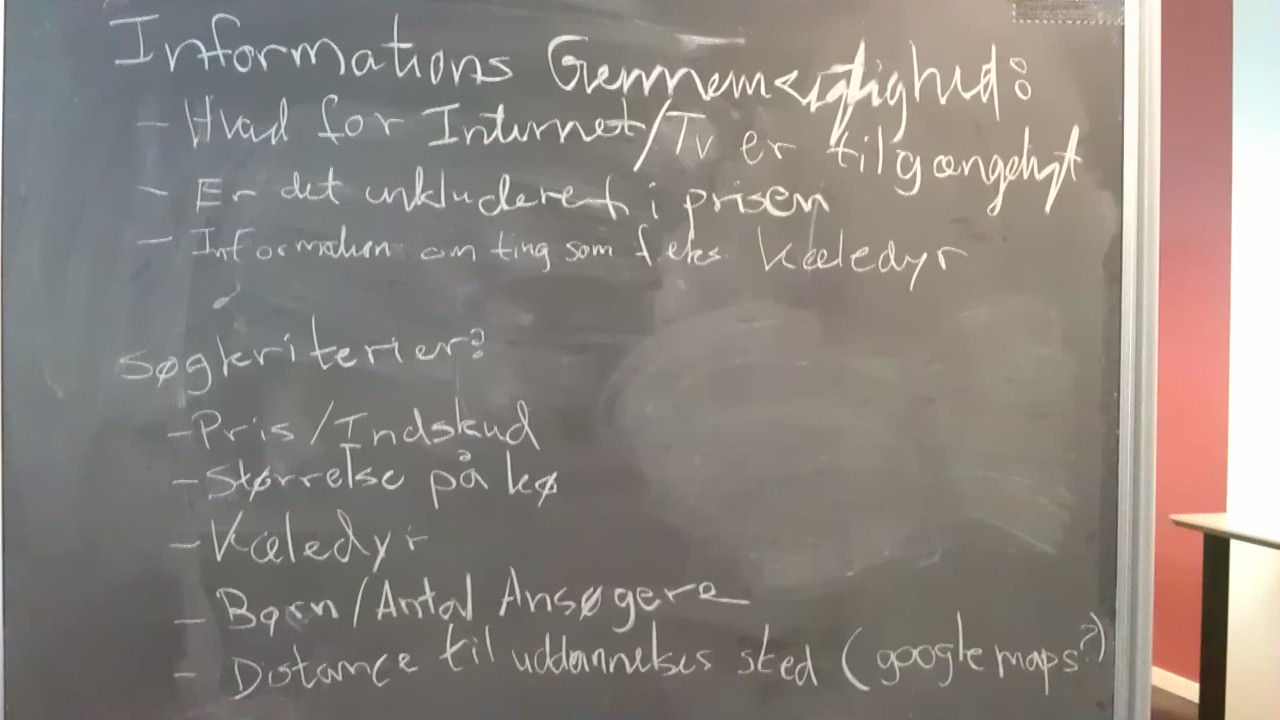 Informations Gennemsigtighed:
- Hvad for Internet/Tv er tilgængeligt
- Er det inkluderet i prisen
- Information om ting som f.eks. Kæledyr
Søgkriterier?
- Pris/Indskud
- Størrelse på kø
- Kæledyr
- Børn/Antal Ansøgere
- Distance til uddannelses sted (google maps?)